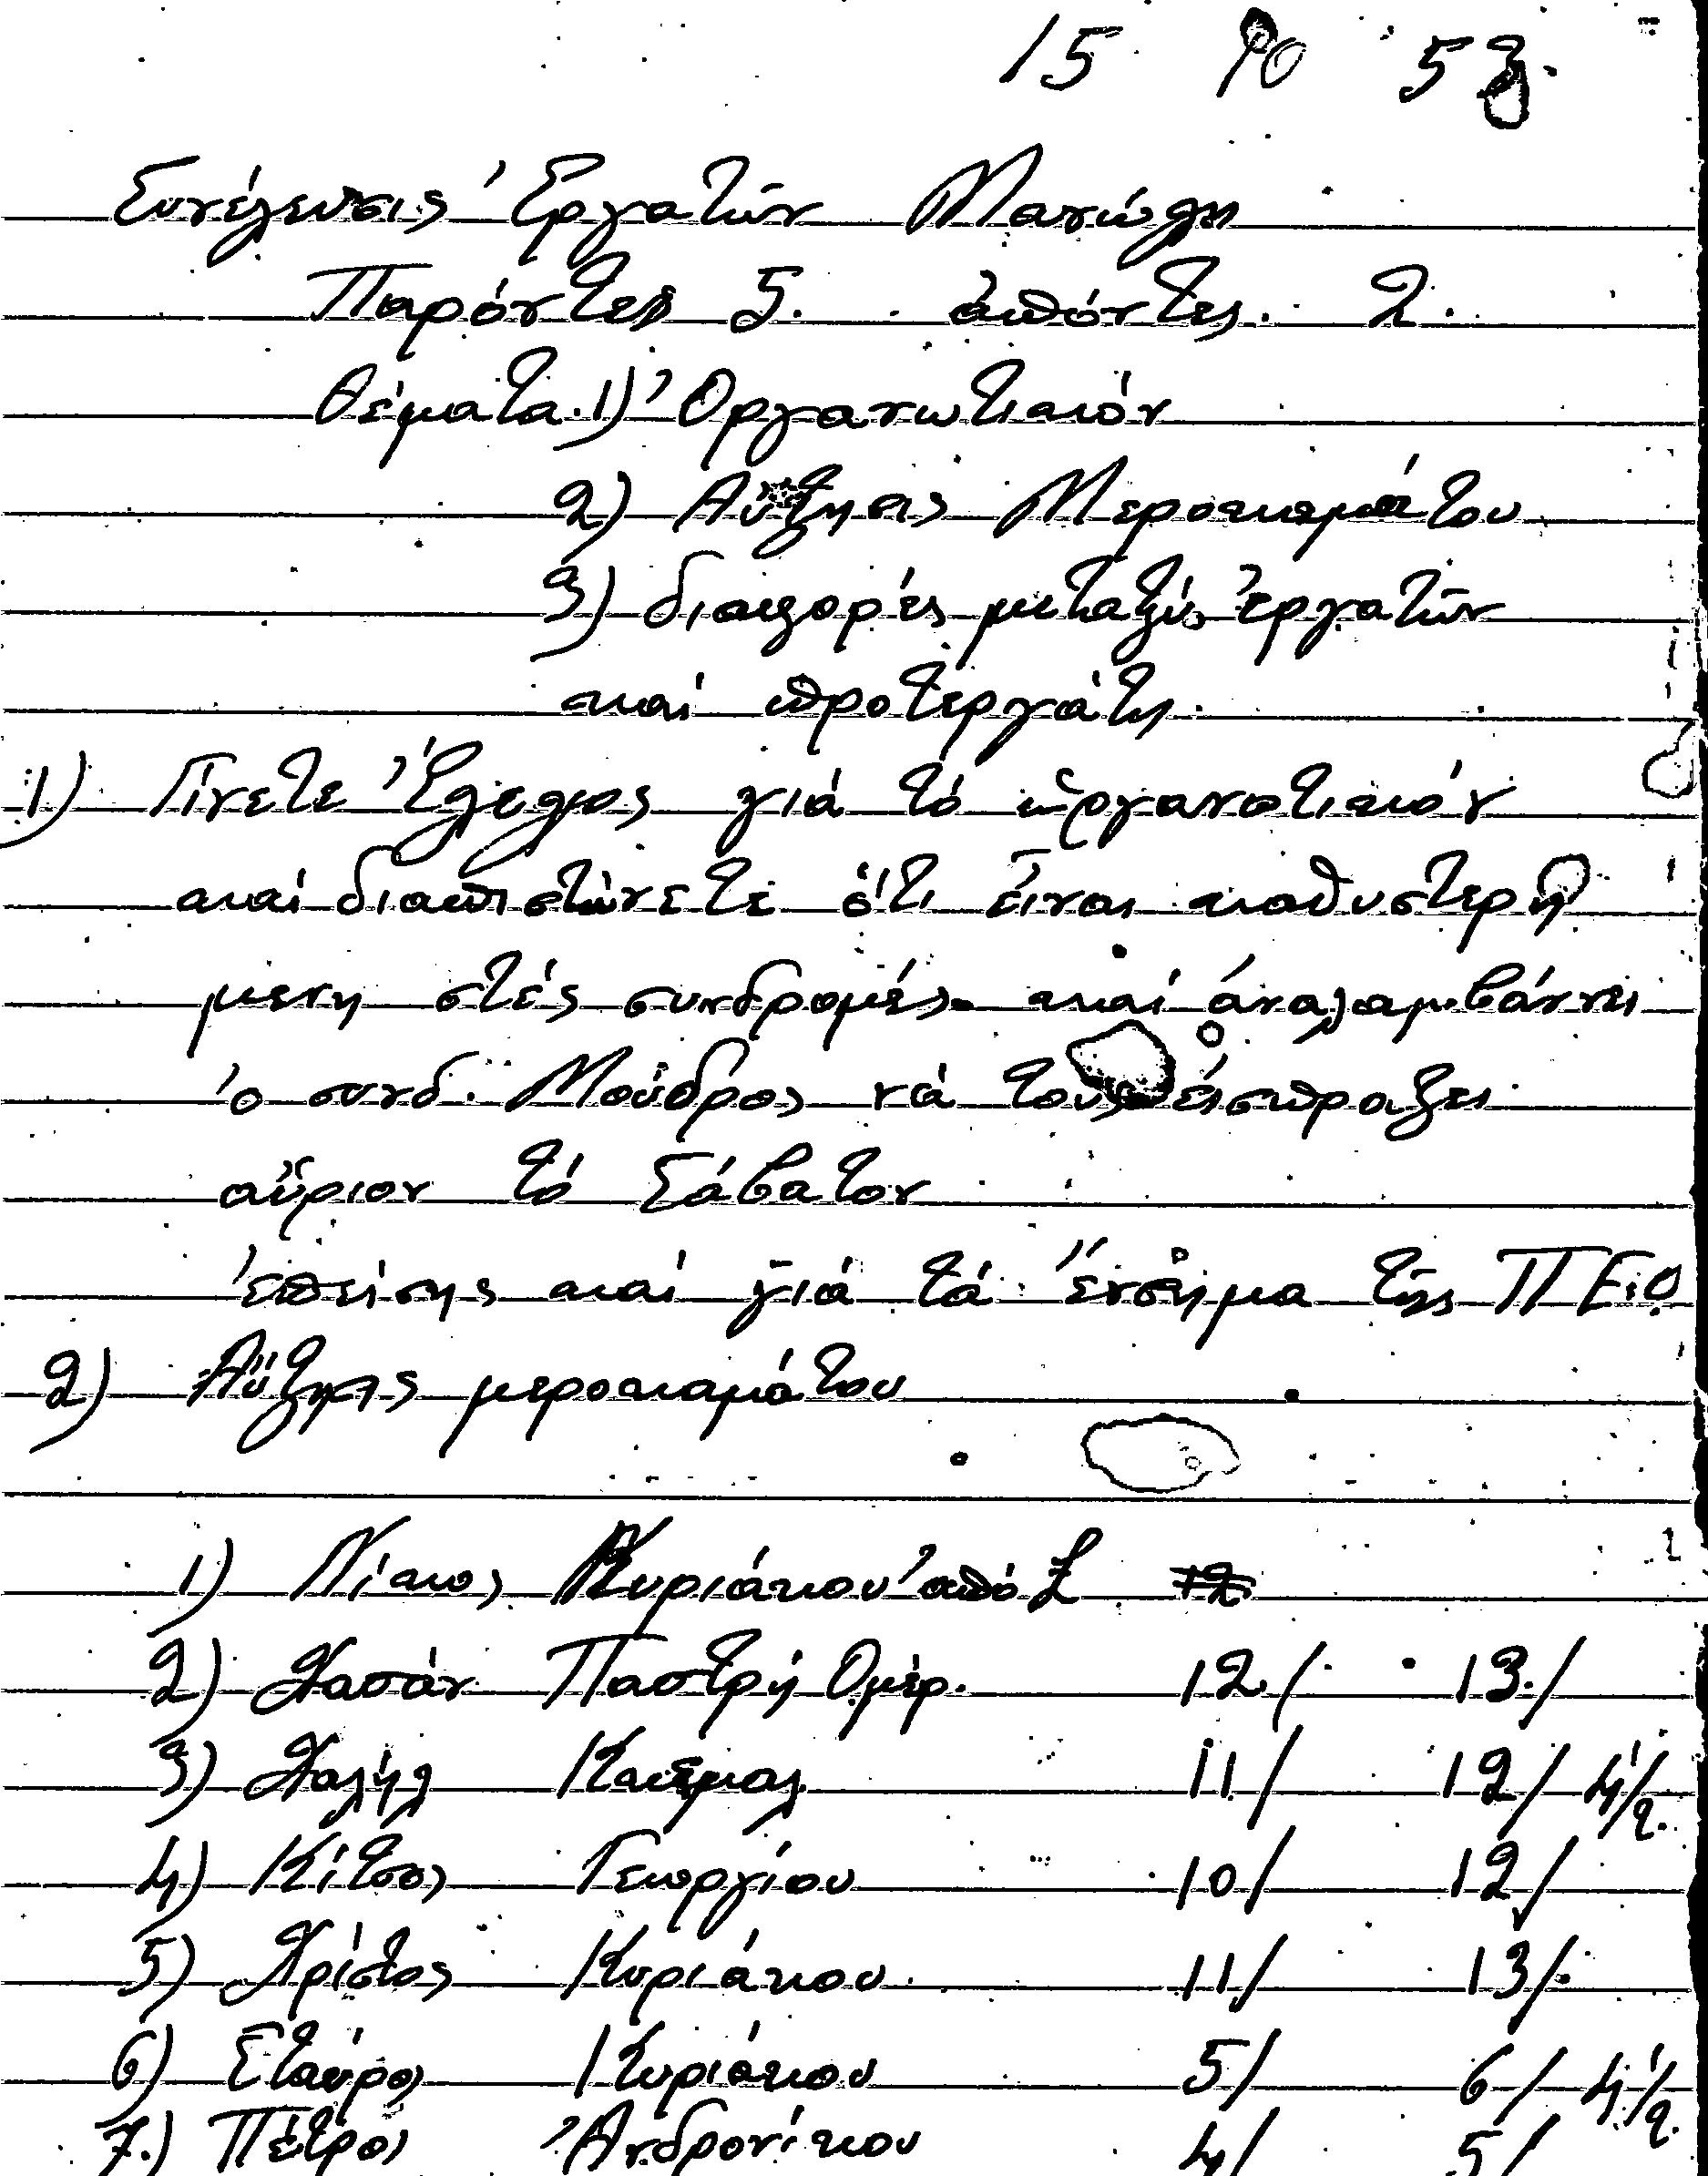 15 10 53.
Συνέλευσις Ἐργατῶν Μανώλη
Παρόντες 5. ἀπόντες. 2.
Θέματα. 1) Ὀργανωτικόν
2) Αὔξησις Μεροκαμάτου
3) διαφορές μεταξύ ἐργατῶν
καί προτεργάτη.
1) Γίνετε Ἔλεγχος γιά τό ὀργανοτικόν
καί διαπιστώνετε ὅτι εἶναι καθυστερη
μενη στές συνδρομές. καί ἀναλαμβάννει
ὁ συνδ. Μούδρος νά τους εἰσπραξει
αὔριον τό Σάβατον
ἐπείσης καί γιά τά ἔνσημα τῆς ΠΕΟ
2) Αὔξησις μεροκαμάτου
1) Νίκος Κυριάκου ἀπό £ 12
2) Χασάν Παστρή Ομέρ. 12/ 13/
3) Χαλήλ Κιαεμαλ 11/ 12/ 4½
4) Κίτσος Γεωργίου 10/ 12/
5) Χρίστος Κυριάκου. 11/ 13/
6) Σταύρος Κυριάκου 5/ 6/ 4½
7.) Πέτρος Ἀνδρονίκου 4/ 5/